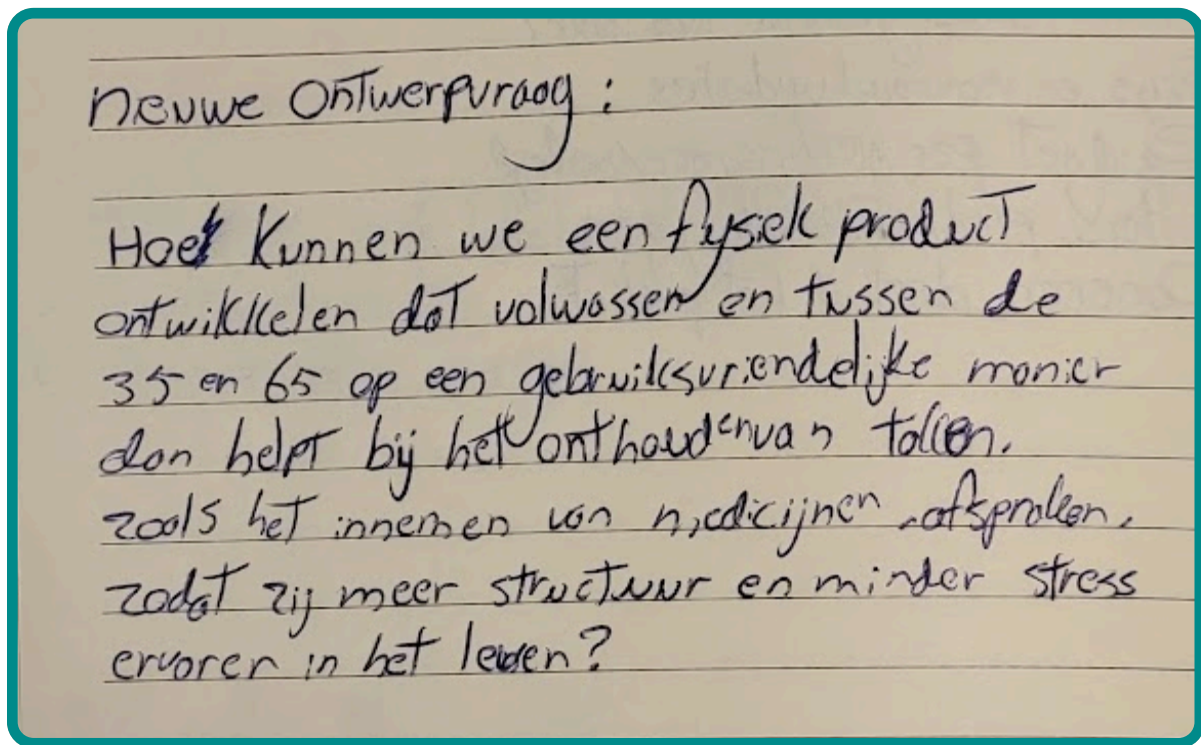 Nieuwe Ontwerpvraag :
Hoe kunnen we een fysiek product
ontwikkelen dat volwassen en tussen de
35 en 65 op een gebruiksvriendelijke manier
dan helpt bij het onthouden van taken.
zoals het innemen van medicijnen, afspraken,
zodat zij meer structuur en minder stress
ervaren in het leven?